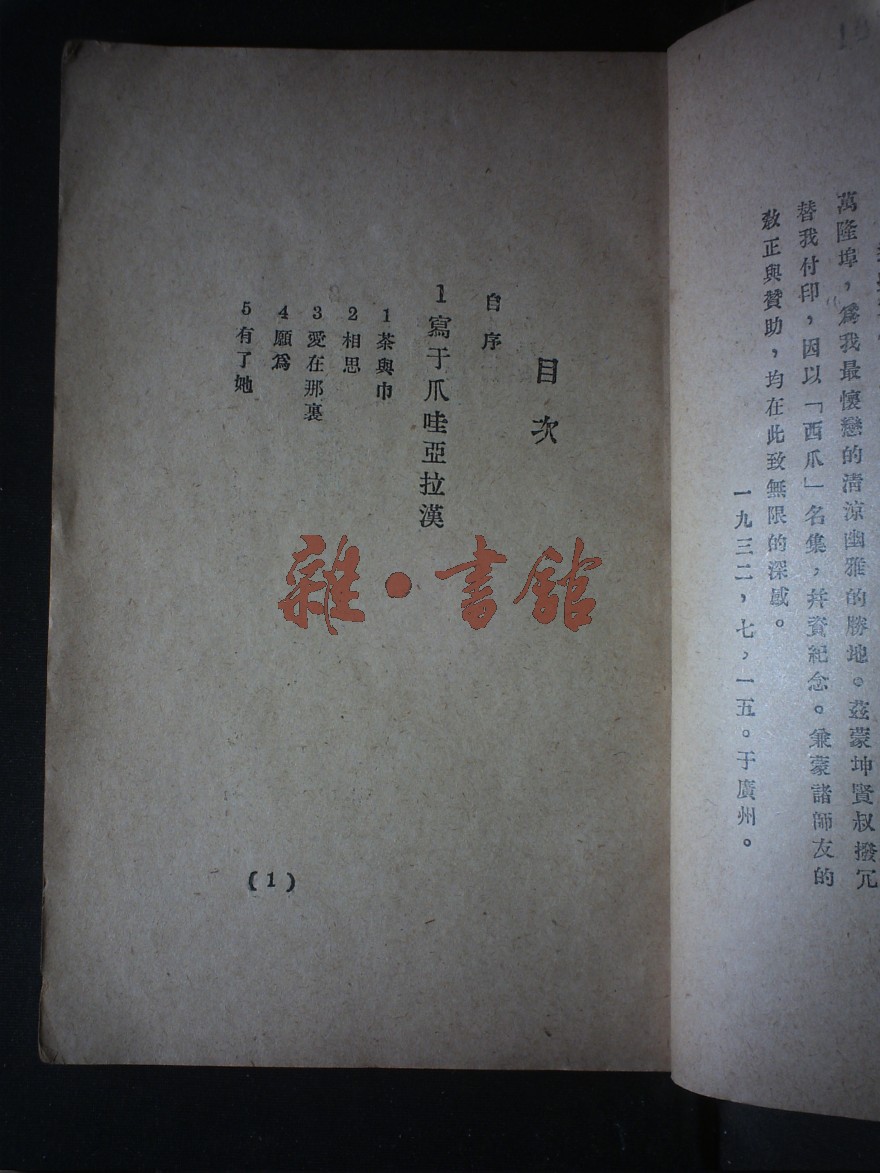 萬隆埠，爲我最懷戀的清涼幽雅的勝地。茲蒙坤賢叔撥冗
替我付印，因以「西爪」名集，幷資紀念。兼蒙諸師友的
敎正與贊助，均在此致無限的深感。
一九三二，七，一五。于廣州。
目次
自序
1 寫于爪哇亞拉漢
1 茶與巾
2 相思
3 愛在那裏
4 願爲
5 有了她
(1)
雜·書館